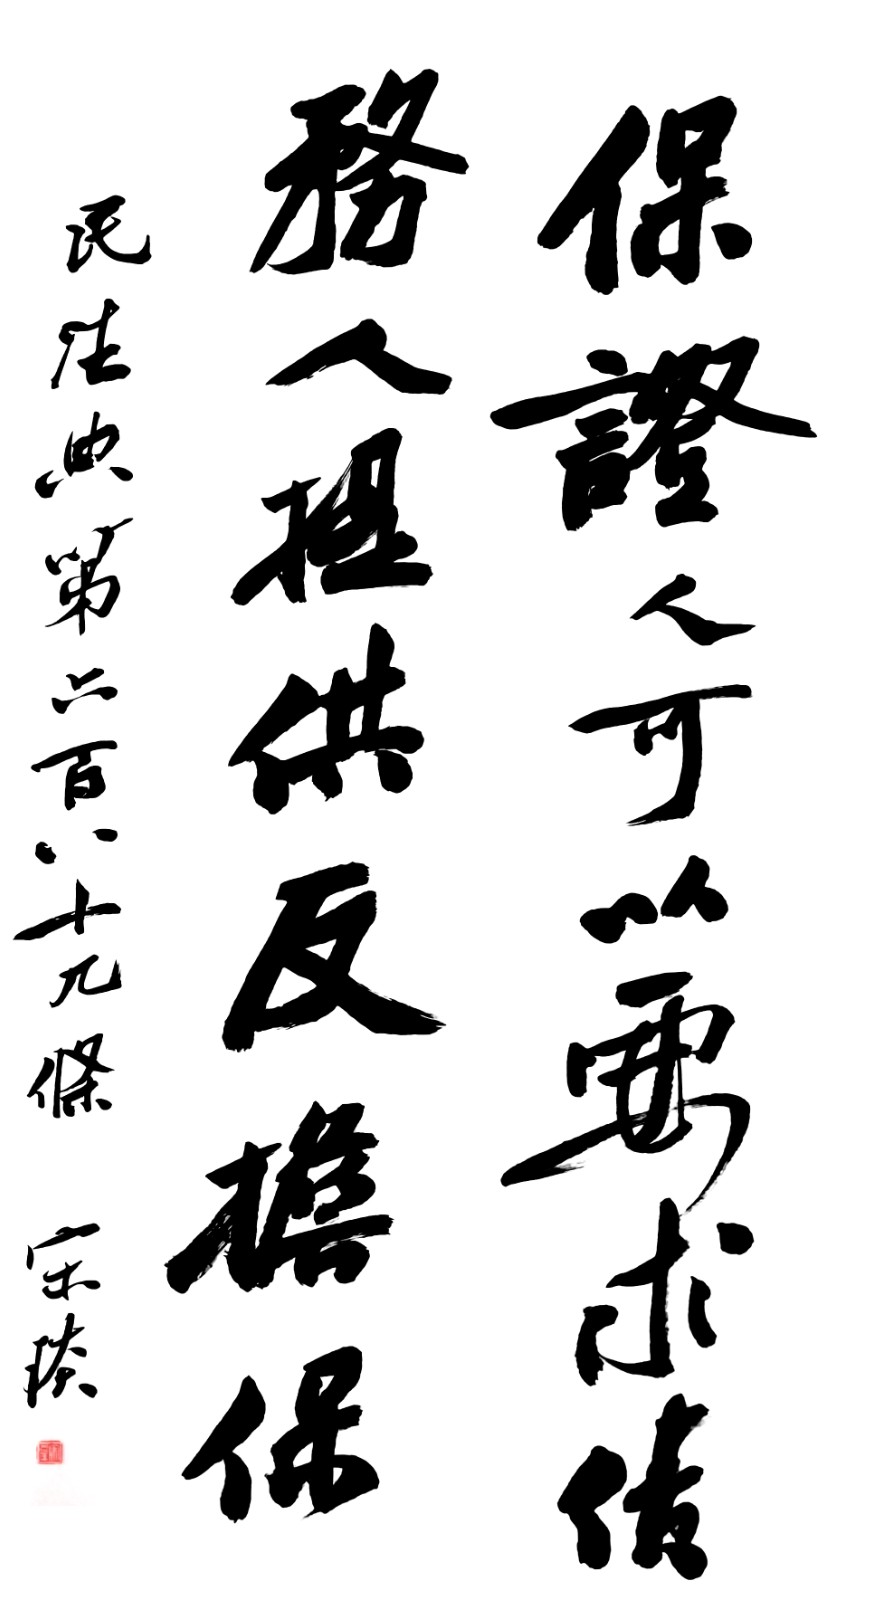 保證人可以要求債
務人提供反擔保
民法典第六百八十九條 宋琰